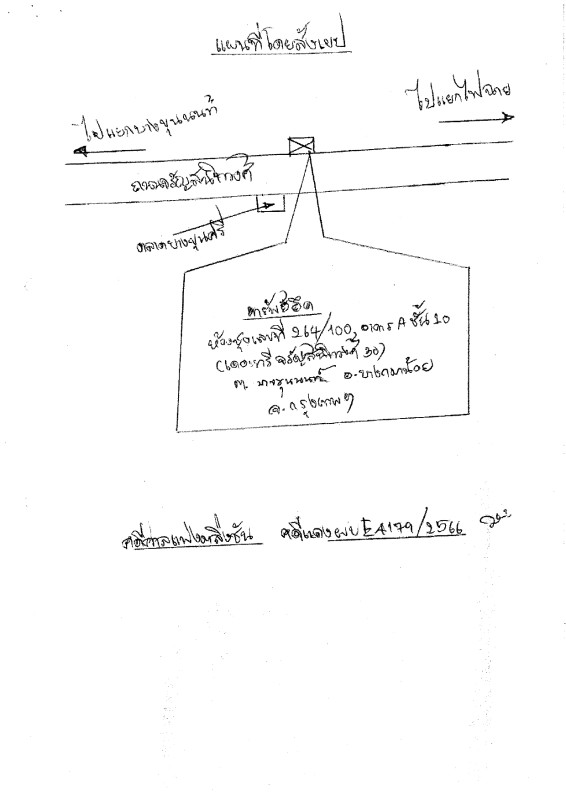 แผนที่โดยสังเขป
ไปแยกบางขุนนนท์
ไปแยกไฟฉาย
ถนนจรัญสนิทวงศ์
ตลาดบางขุนศรี
ทรัพย์ยึด
ห้องชุดเลขที่ 264/100, อาคาร A ชั้น 20
(เดอะทรี จรัญสนิทวงศ์ 30)
ต. บางขุนนนท์ อ. บางกอกน้อย
จ. กรุงเทพฯ
คดีศาลแพ่งตลิ่งชัน คดีแดง ผบE4179/2566